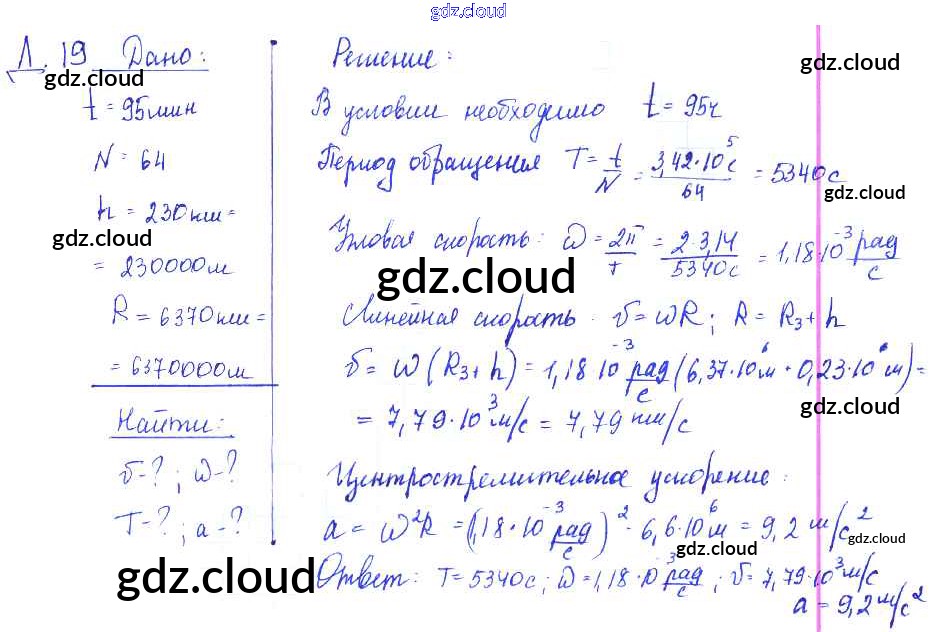 gdz.cloud
Л. 19 Дано:
gdz.cloud
t = 95мин
N = 64
h = 230км =
gdz.cloud
= 230000м
R = 6370км =
= 6370000м
Найти:
v-? ; ω-?
T-? ; a-?
gdz.cloud
Решение:
gdz.cloud
В условии необходимо t = 95ч
Период обращения T = t/N = 3,42·10⁵с/64 = 5340с
gdz.cloud
Угловая скорость: ω = 2π/T = 2·3,14/5340с = 1,18·10⁻³ рад/с
gdz.cloud
Линейная скорость. v = ωR; R = Rз + h
v = ω(Rз + h) = 1,18 10⁻³ рад/с (6,37·10⁶м · 0,23·10⁶м) =
gdz.cloud
= 7,79·10³м/с = 7,79 км/с
Центростремительное ускорение:
a = ω²R = (1,18·10⁻³ рад/с)² · 6,6·10⁶м = 9,2 м/с²
gdz.cloud
gdz.cloud
Ответ: T = 5340с; ω = 1,18·10⁻³ рад/с; v = 7,79·10³м/с
a = 9,2 м/с²